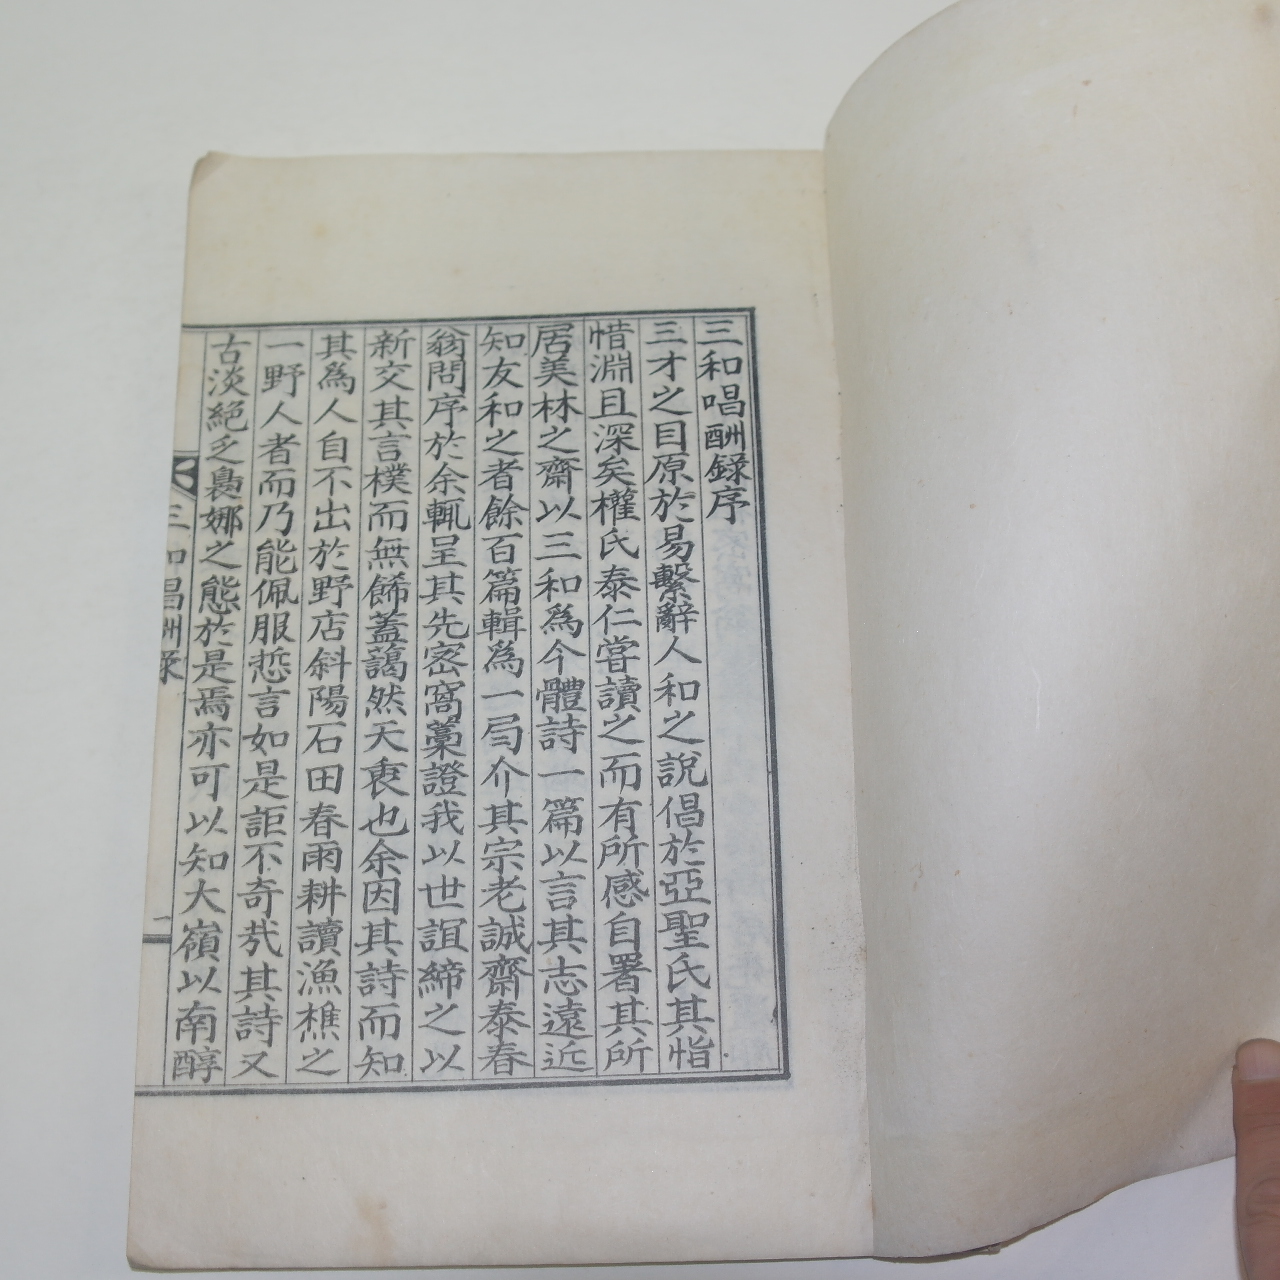 三和唱酬錄序
三才之目原於易繫辭人和之說倡於亞聖氏其恉
惜淵且深矣權氏泰仁嘗讀之而有所感自署其所
居美林之齋以三和爲今體詩一篇以言其志遠近
知友和之者餘百篇輯爲一局介其宗老誠齋泰春
翁問序於余輒呈其先窩藁證我以世誼締之以
新交其言樸而無餙蓋藹然天衷也余因其詩而知
其爲人自不出於野店斜陽石田春雨耕讀漁樵之
一野人者而乃能佩服悊言如是詎不奇哉其詩又
古淡絕乏裊娜之態於是焉亦可以知大嶺以南醇
三和唱酬錄
一